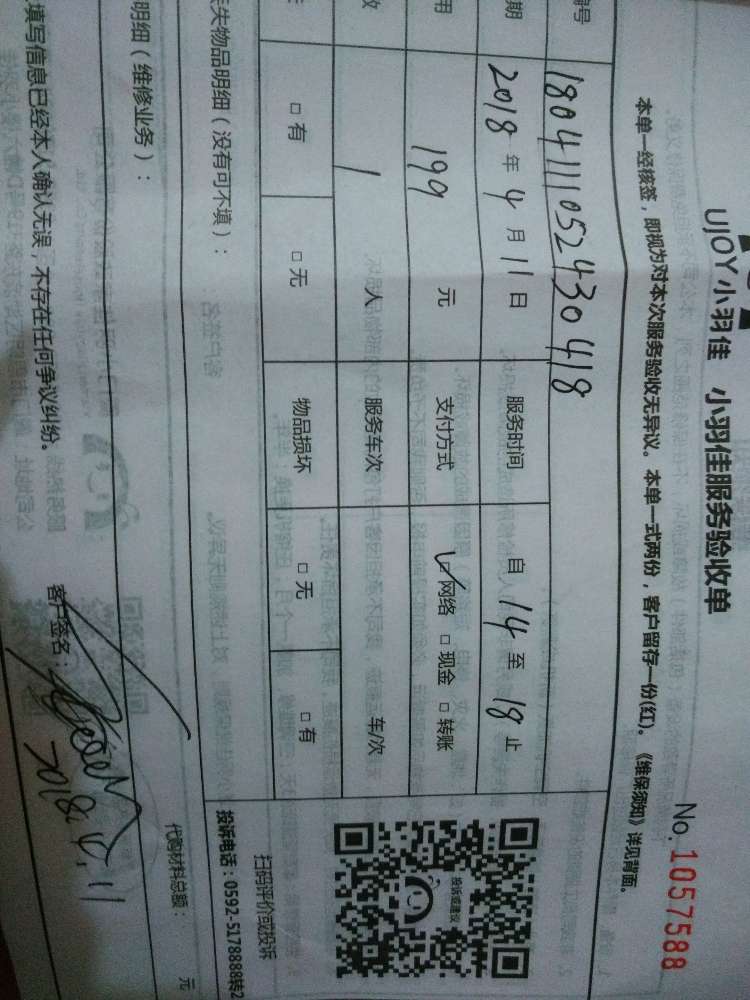 UJOY小羽佳 小羽佳服务验收单
No. 1057588
本单一经核签，即视为对本次服务验收无异议。本单一式两份，客户留存一份(红)。《维保须知》详见背面。
编号 180411105243 0418
期 2018 年 4 月 11 日 服务时间 自 14 至 18 止
用 199 元 支付方式 ✓网络 □现金 □转账
数 1 人 服务车次 车/次
□有 □无 物品损坏 □无 □有
失物品明细（没有可不填）：
投诉或建议
扫码评价或投诉
投诉电话：0592-5178888转2
明细（维修业务）：
代购材料总额： 元
填写信息已经本人确认无误，不存在任何争议纠纷。
客户签名：
2018.4.11